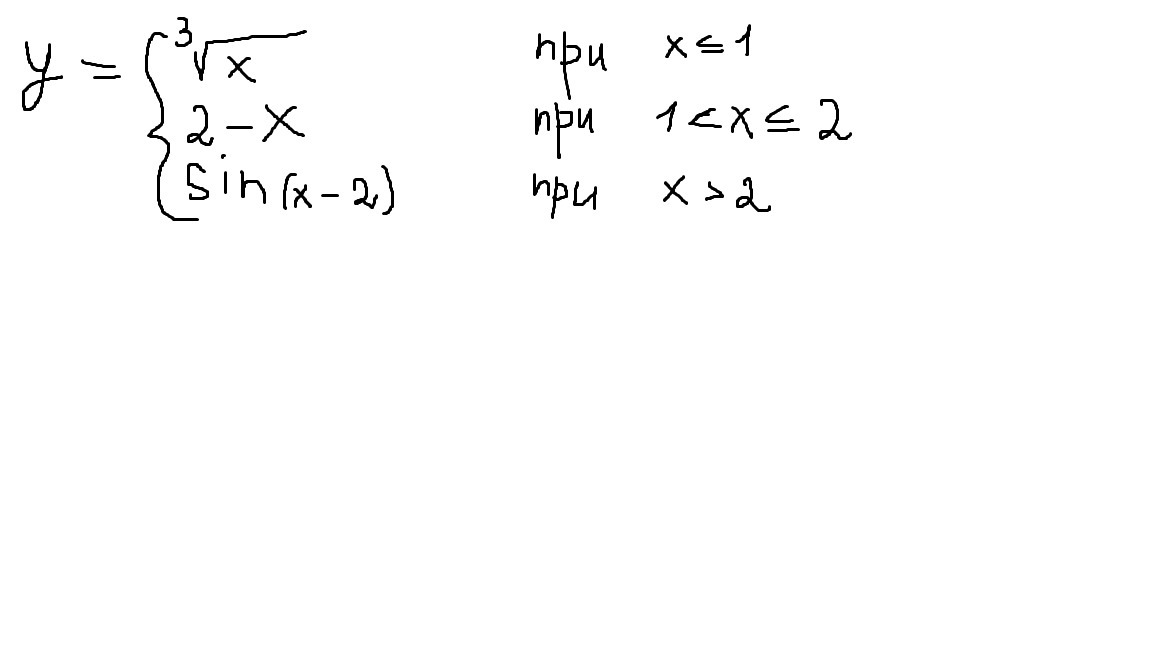 y = { ³√x при x ≤ 1
2 - x при 1 < x ≤ 2
sin (x - 2) при x > 2